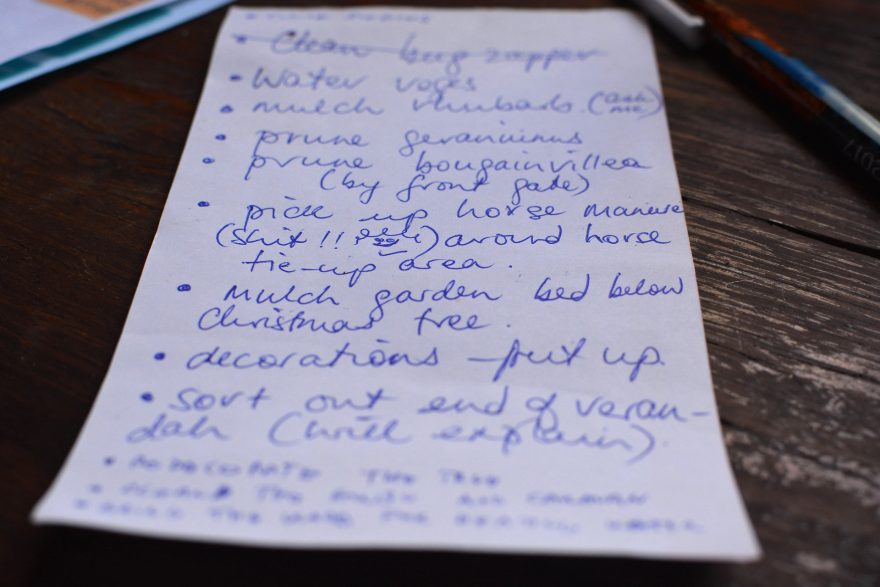 • Clean bug zapper
• Water roses
• mulch rhubarb. (ask me)
• prune geraniums
• prune bougainvillea
(by front gate)
• pick up horse manure
(shit!!) around horse
tie-up area.
• mulch garden bed below
Christmas tree.
• decorations – put up.
• sort out end of veran-
dah (will explain).
• THE TREE
• THE AND CARAVAN
• THE THE
2017